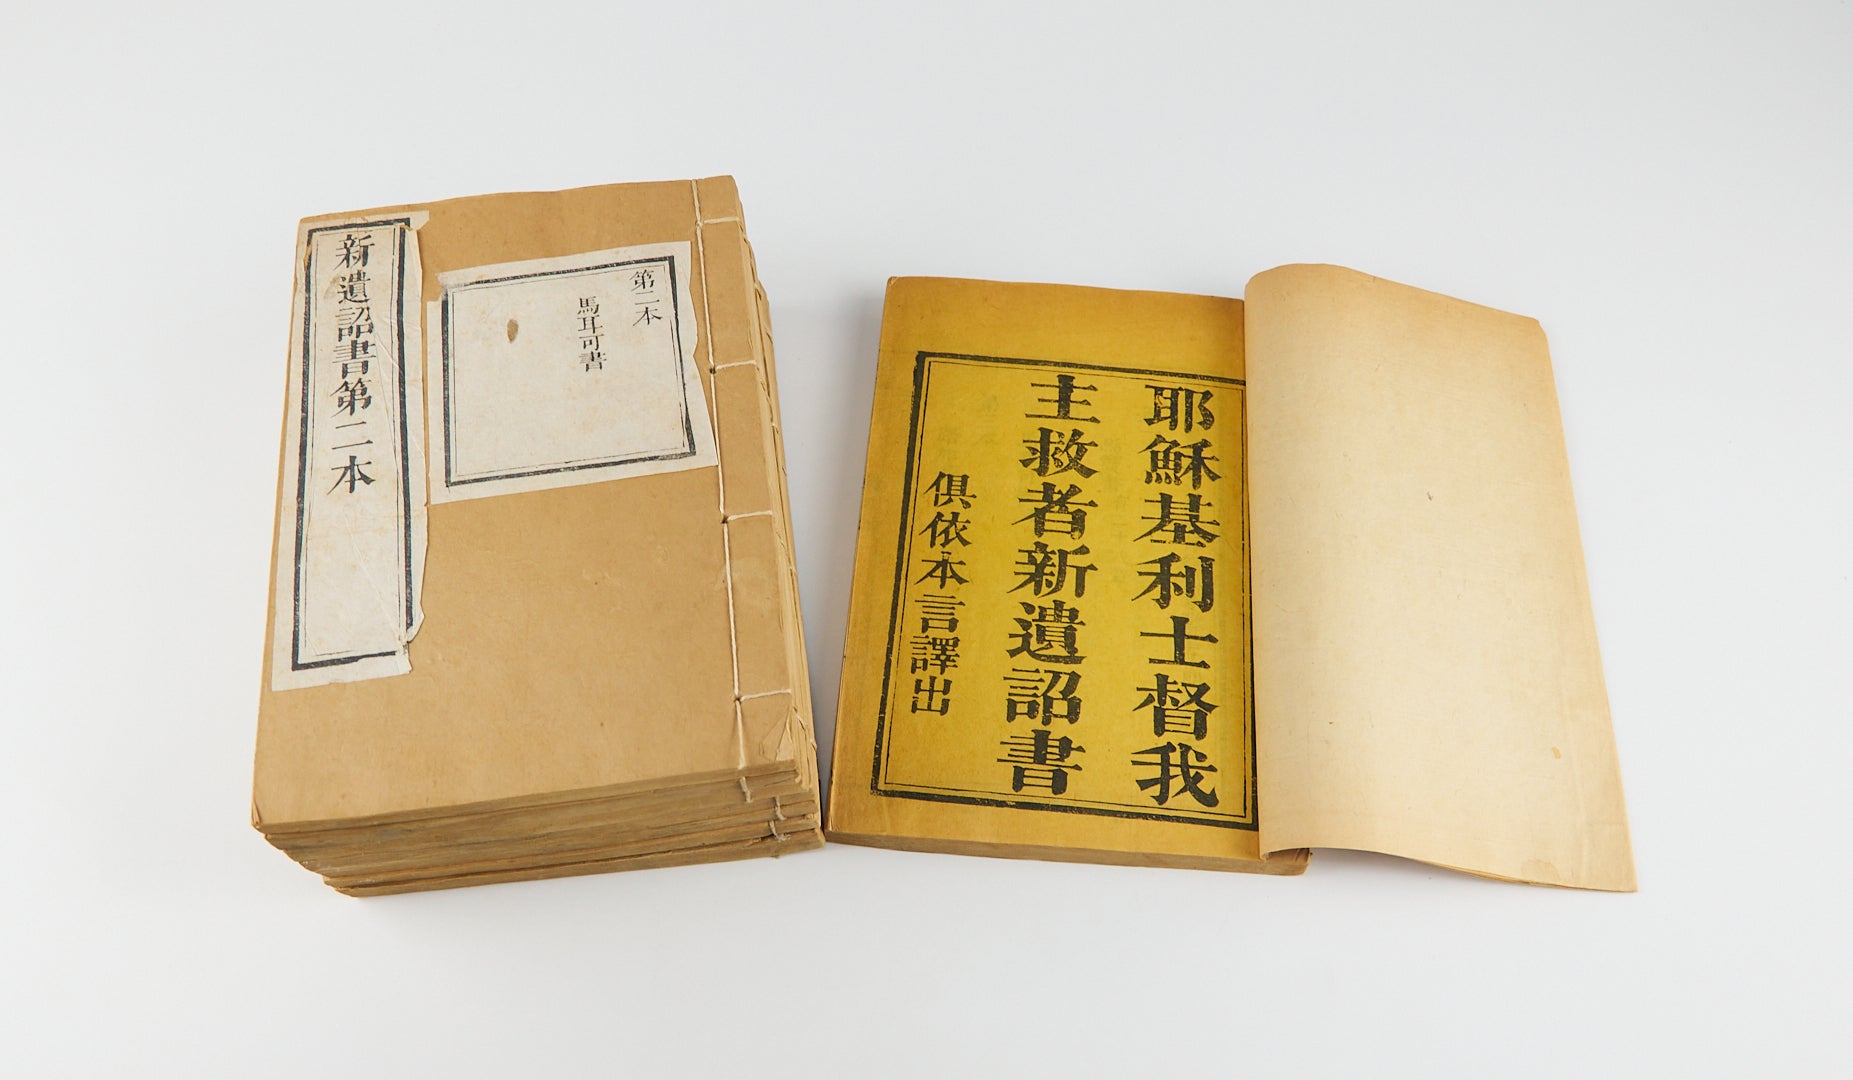 新遺詔書第二本
第二本
馬耳可書
耶穌基利士督我
主救者新遺詔書
俱依本言譯出